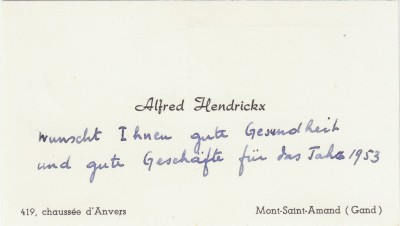 Alfred Hendrickx
wunscht Ihnen gute Gesundheit
und gute Geschäfte für das Jahr 1953
419, chaussée d'Anvers
Mont-Saint-Amand (Gand)